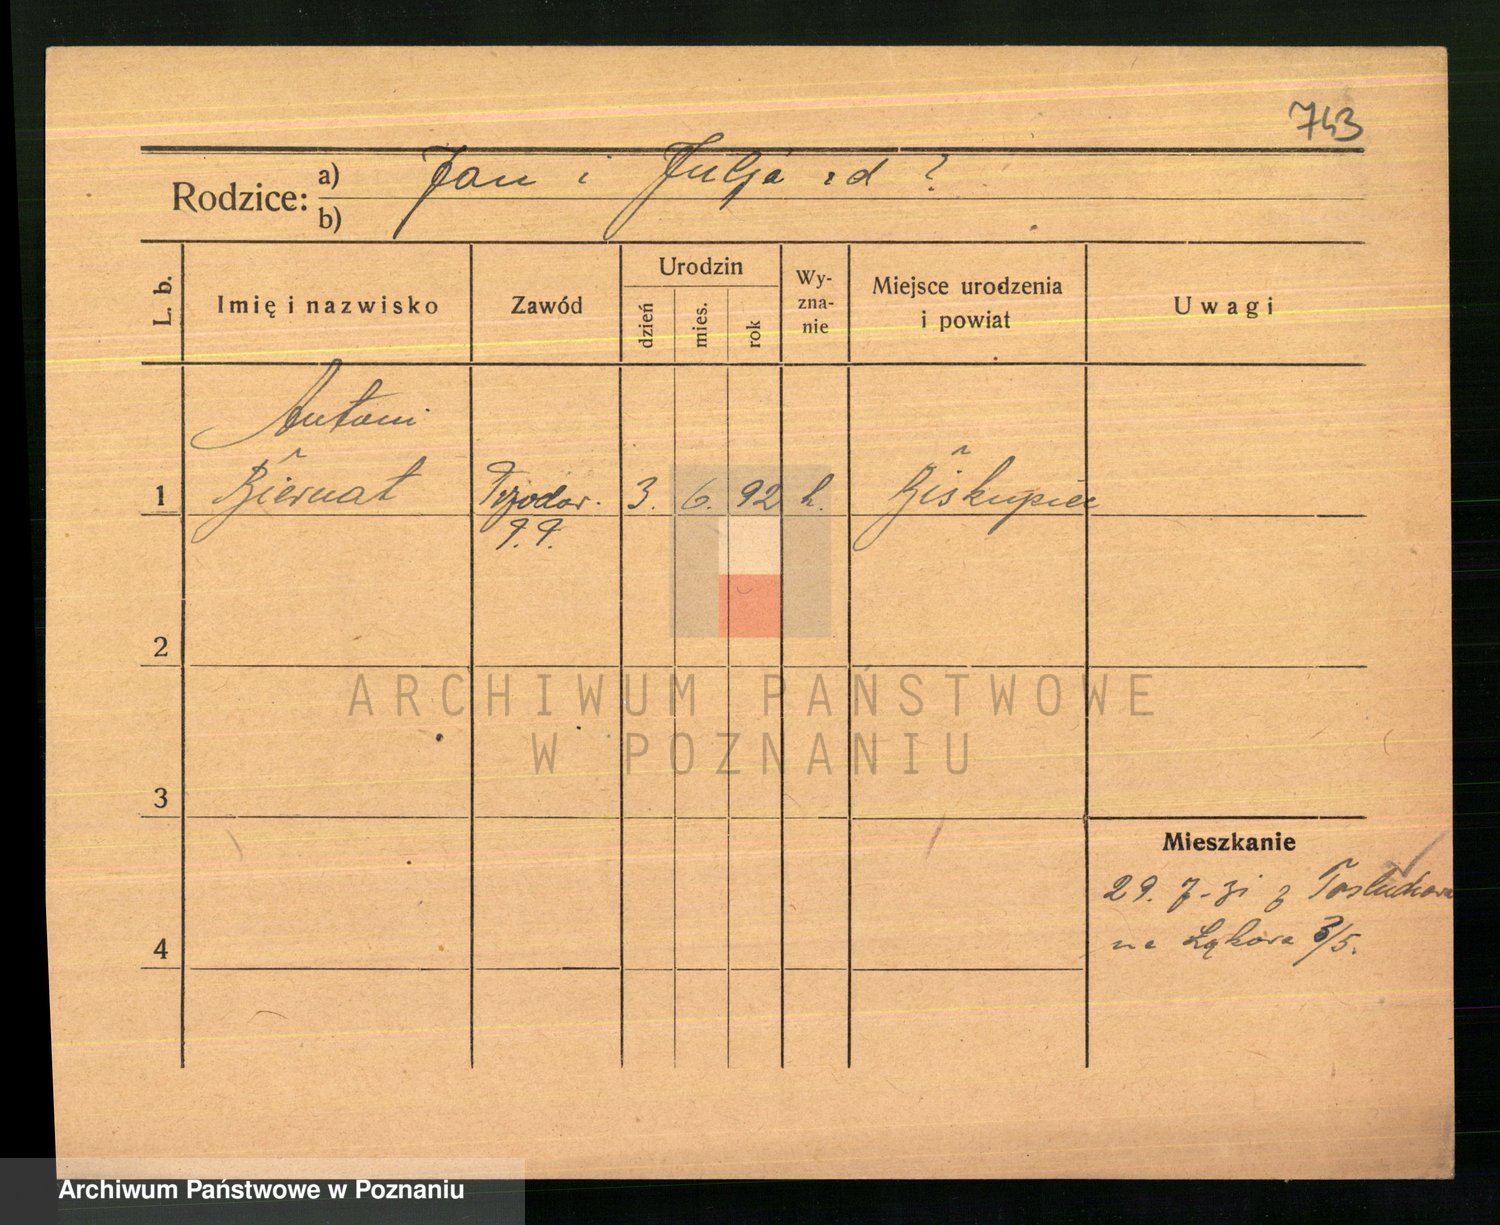 743
Rodzice: a) Jan i Julja z d ?
b)
L. b. Imię i nazwisko Zawód Urodzin dzień mies. rok Wy-zna-nie Miejsce urodzenia i powiat Uwagi
Antoni
1 Biernat Przodow. 3. 6. 92 k. Biskupiec
P. P.
2
ARCHIWUM PAŃSTWOWE
W POZNANIU
3
Mieszkanie
29. 7-31 z
4 na Łąkowa 3/5.
Archiwum Państwowe w Poznaniu